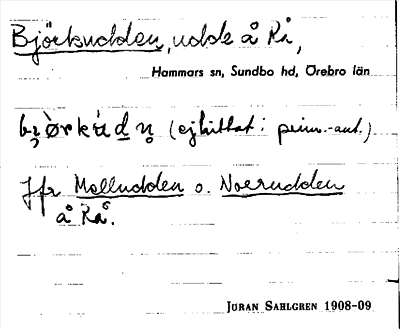 Björkudden, udde å Rå,
Hammars sn, Sundbo hd, Örebro län
(ej hittat i prim.-ant.)
Jfr Melludden o. Norrudden
å Rå.
JÖRAN SAHLGREN 1908-09